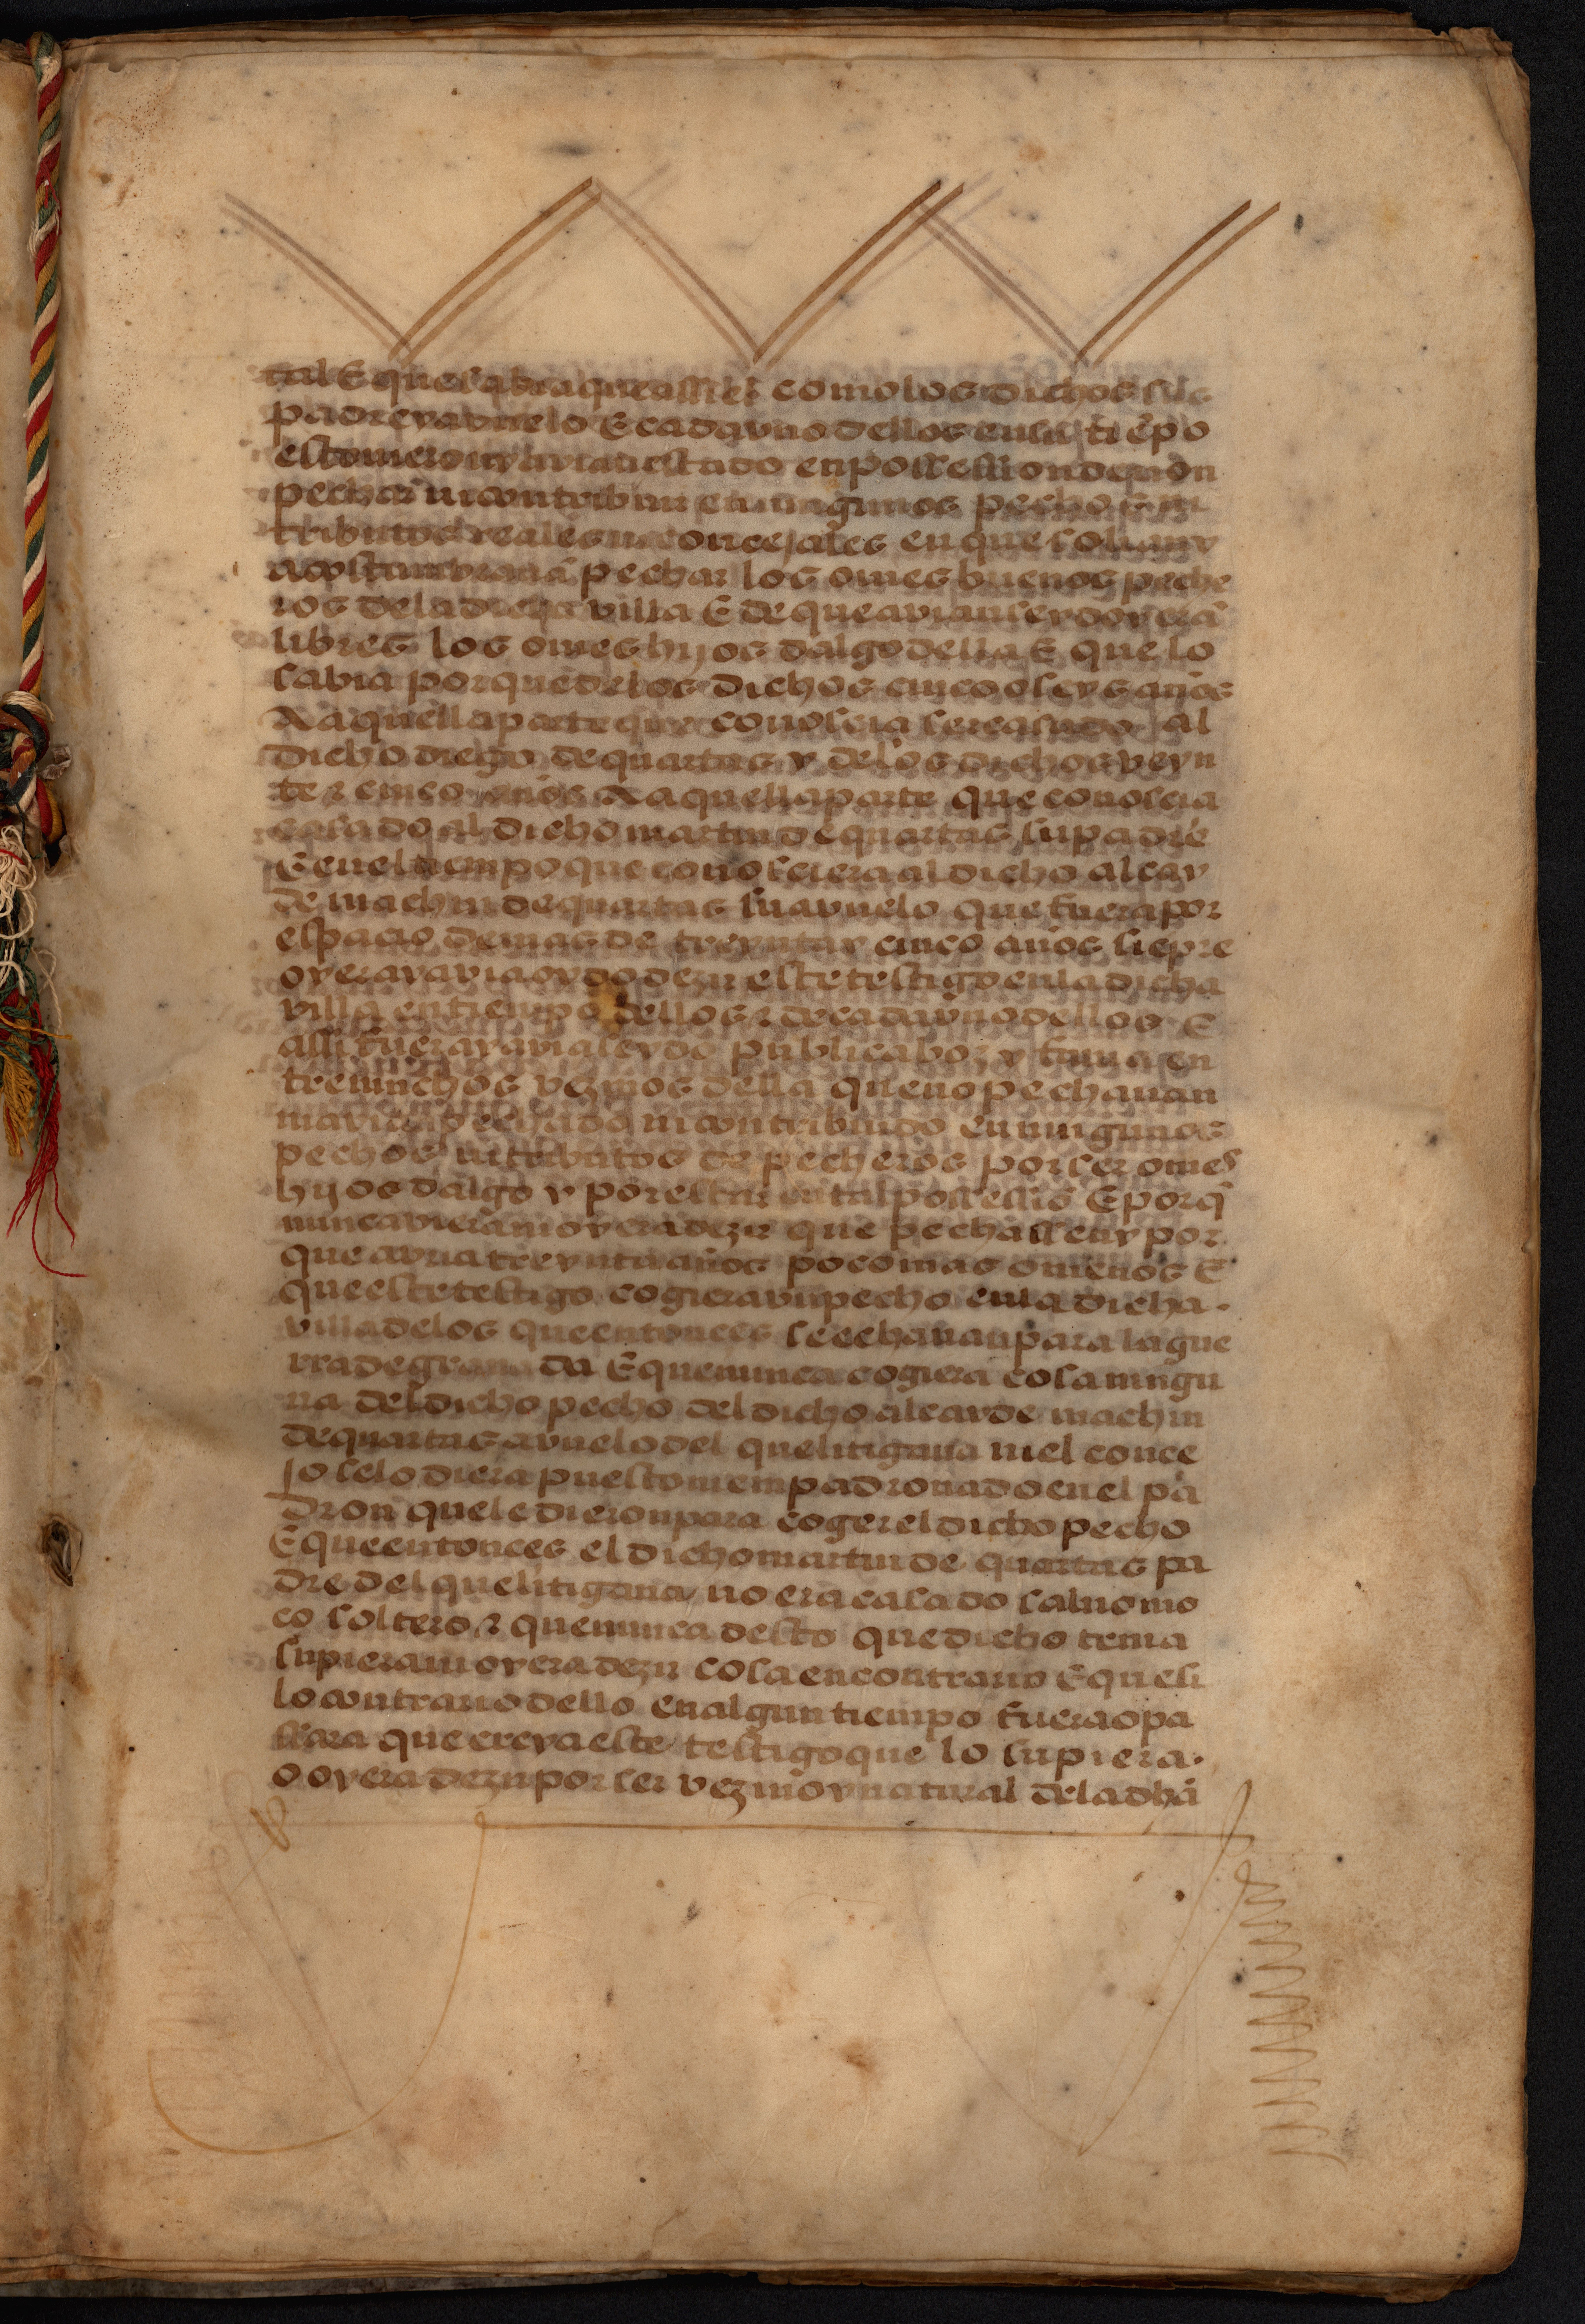 tal E que sabia que assi el como los dichos sus
padre y avuelo E cada vno dellos en su tiẽpo
estovieron y avian estado en possession de non
pechar ni contribuir en ningunos pechos ni
tributos reales ni concejales en que solian y
acostumbravã pechar los omes buenos peche
ros de la dicha villa E de que avian seydo y erã
libres los omes hijos dalgo della E que lo
sabia porque de los dichos cinco o seys años
a aquella parte que conoscia ser casado al
dicho diego de quartas y de los dichos veyn
te z cinco años a aquella parte que conoscia
casado al dicho martin de quartas su padre
E en el tiempo que conosciera al dicho alcay
de machin de quartas su avuelo que fuera por
espacio de mas de treynta y cinco años siẽpre
oyera y avia oydo dezir este testigo en la dicha
villa en tiempo dellos z de cada vno dellos E
assi fuera y avia seydo publica boz y fama en
tre muchos vezinos della que no pechavan
ni avian pechado ni contribuido en ningunos
pechos ni tributos de pecheros por ser omes
hijos dalgo y por estar en tal possessiõ E porq̃
nunca viera ni oyera dezir que pechassen y por
que avria treynta años poco mas o menos E
que este testigo cogiera vn pecho en la dicha
villa de los que entonces se echavan para la gue
rra de granada E que nunca cogiera cosa ningu
na del dicho pecho del dicho alcayde machin
de quartas avuelo del que litigava ni el conce
jo se lo diera puesto ni empadronado en el pa
dron que le dieron para coger el dicho pecho
E que entonces el dicho martin de quartas pa
dre del que litigava no era casado salvo mo
ço soltero z que nunca desto que dicho tenia
supiera ni oyera dezir cosa en contrario E que si
lo contrario dello en algun tiempo fuera o pa
ssara que creya este testigo que lo supiera
o oyera dezir por ser vezino y natural de la dhã